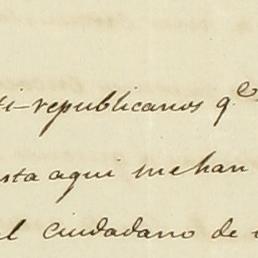 ti-republicanos q.e
sta aqui me han
el ciudadano de